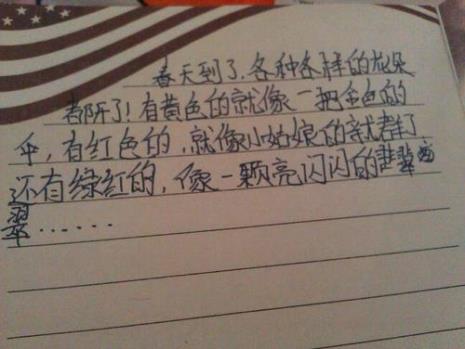 春天到了，各种各样的花朵
都开了！有黄色的就像一把金色的
伞，有红色的，就像小姑娘的
还有绿红的，像一颗亮闪闪的翡翠
翠……